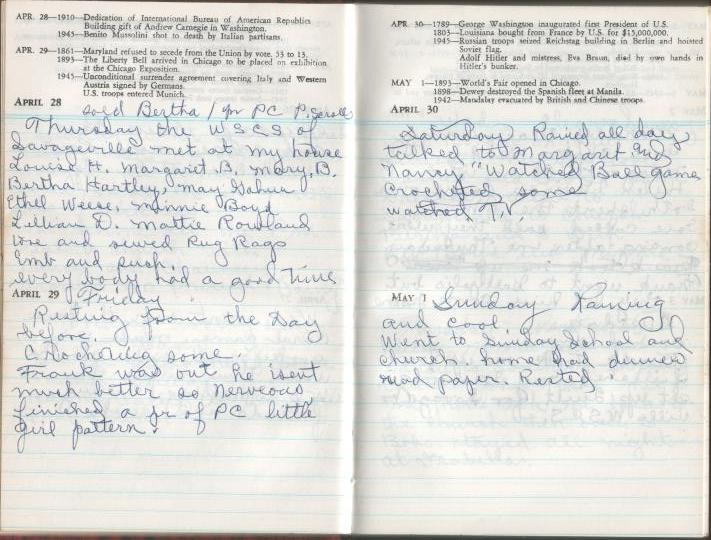 APR. 28—1910—Dedication of International Bureau of American Republics
Building gift of Andrew Carnegie in Washington.
1945—Benito Mussolini shot to death by Italian partisans.
APR. 29—1861—Maryland refused to secede from the Union by vote, 53 to 13.
1893—The Liberty Bell arrived in Chicago to be placed on exhibition
at the Chicago Exposition.
1945—Unconditional surrender agreement covering Italy and Western
Austria signed by Germans.
U.S. troops entered Munich.
APRIL 28
sold Bertha 1 pr PC P.
Thursday the WSCS of
Savageville met at my house
Louise H. Margaret B. Mary, B.
Bertha Hartley, May
Ethel Weese, Minnie Boyd
Lillian D. Mattie Rowland
tore and sewed Rug Rags
Emb and such.
every body had a good time
APRIL 29 Friday
Resting from the Day
before.
Crocheting some.
Frank was out he isent
much better so nerveous
finished a pr of PC little
girl pattern.
APR. 30—1789—George Washington inaugurated first President of U.S.
1803—Louisiana bought from France by U.S. for $15,000,000.
1945—Russian troops seized Reichstag building in Berlin and hoisted
Soviet flag.
Adolf Hitler and mistress, Eva Braun, died by own hands in
Hitler's bunker.
MAY 1—1893—World's Fair opened in Chicago.
1898—Dewey destroyed the Spanish fleet at Manila.
1942—Mandalay evacuated by British and Chinese troops.
APRIL 30
Saturday Rained all day
talked to Margaret and
Nancy "Watched Ball game
Crocheted some
watched T.V
MAY 1 Sunday Raining
and cool.
Went to Sunday School and
church. home had dinner
read paper. Rested.